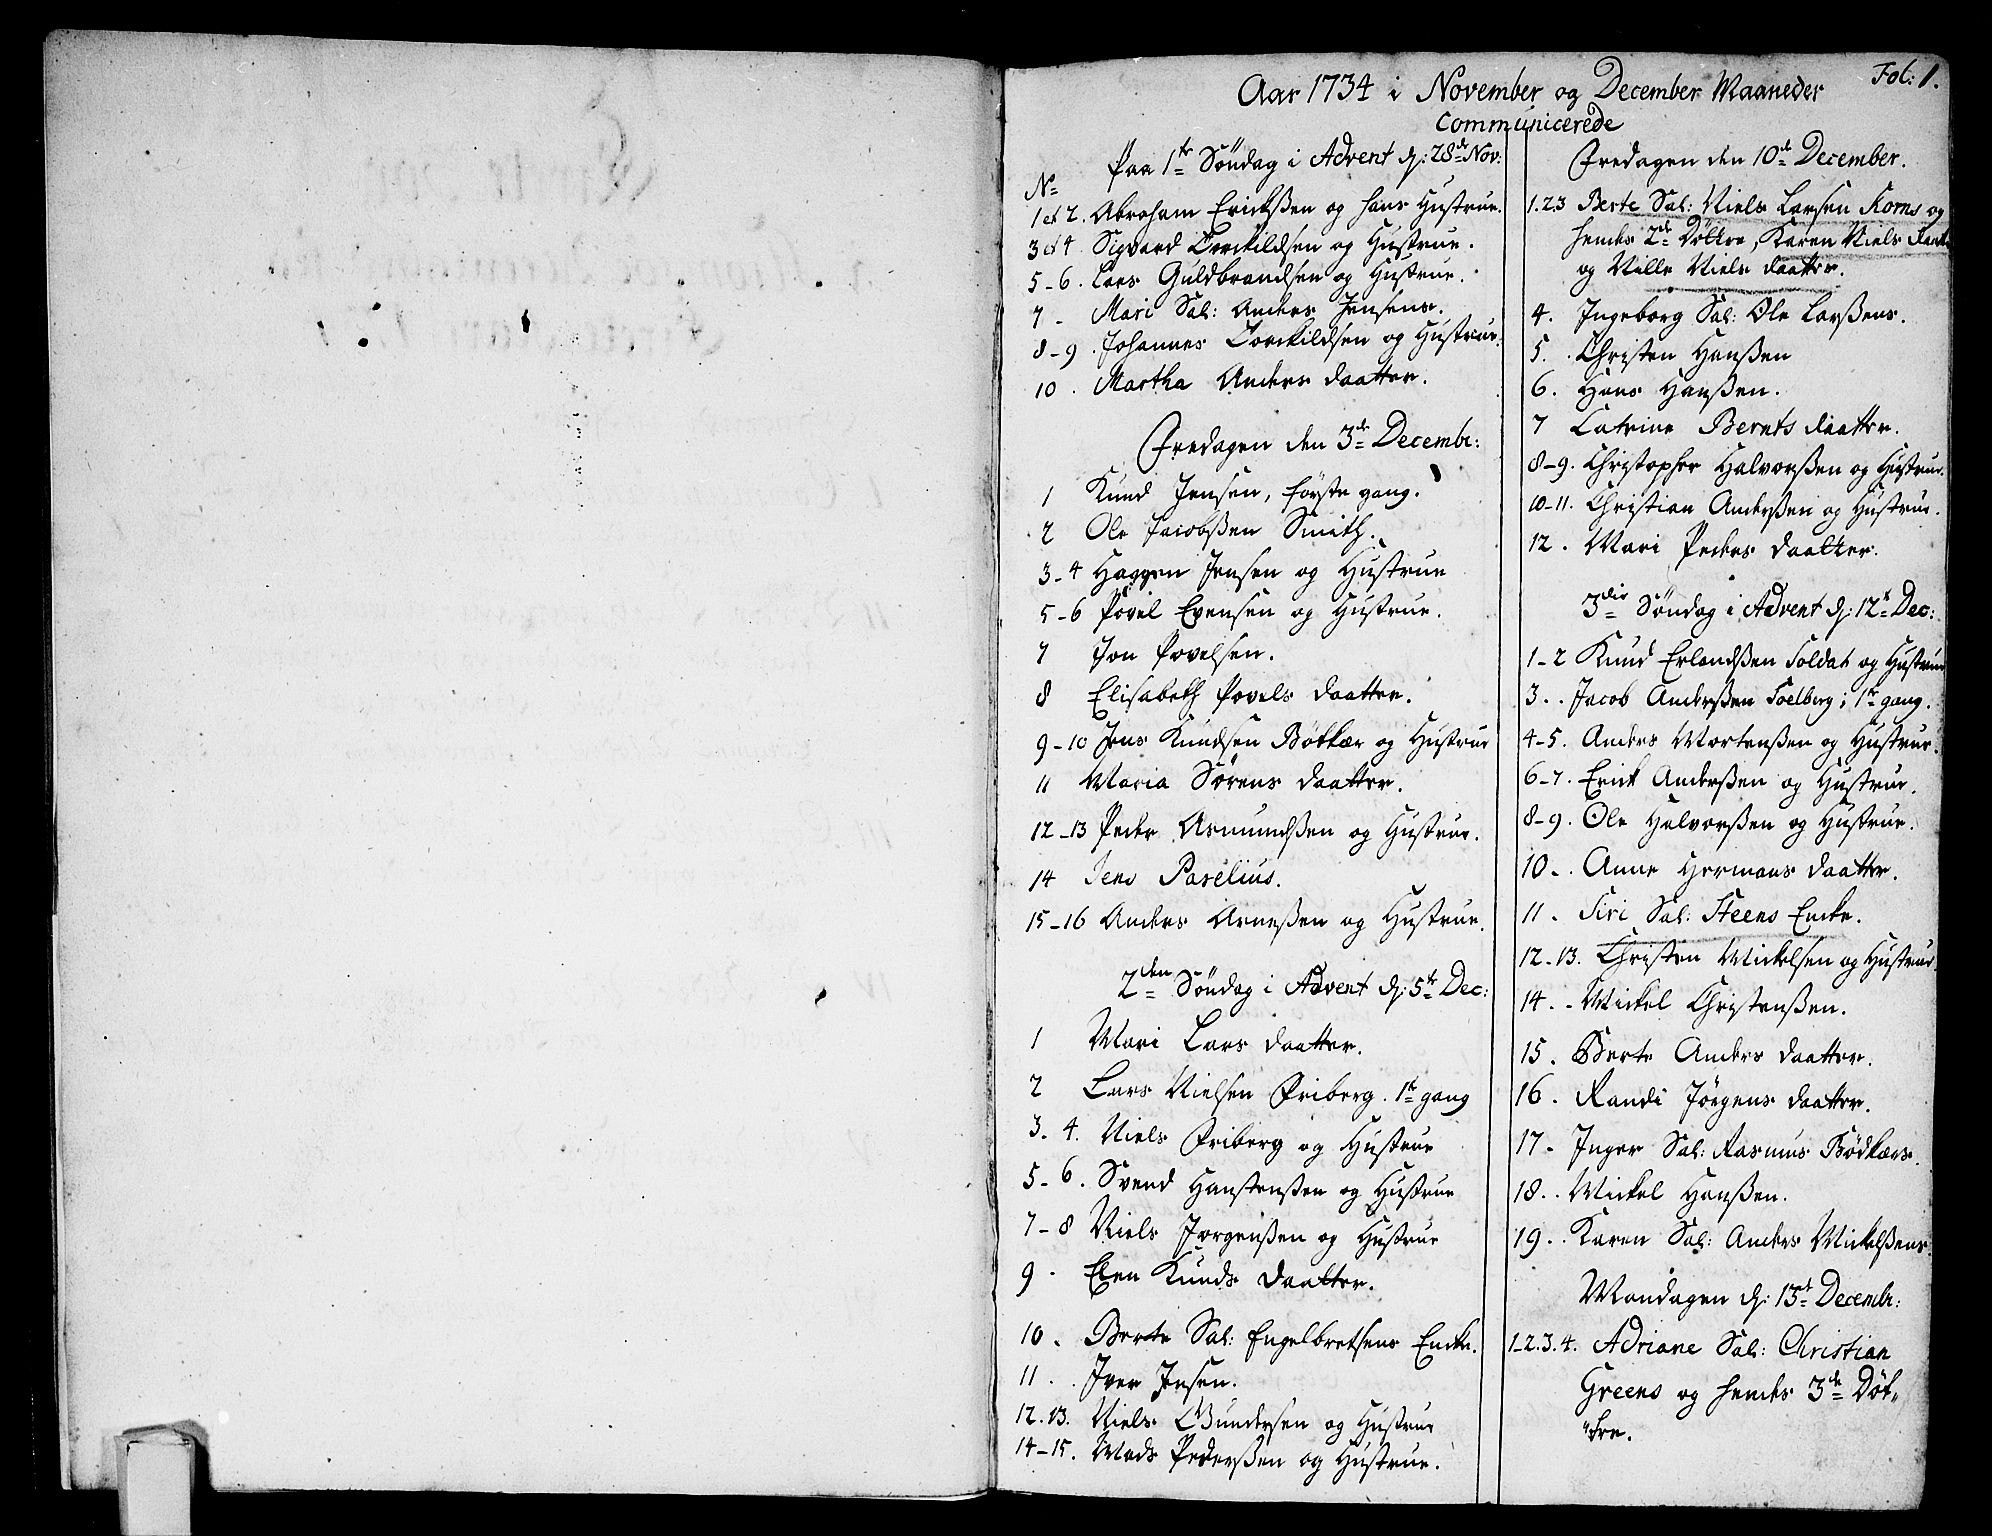 Fol: 1.
Aar 1734 i November og December Maaneder
Communicerede
Paa 1te Söndag i Advent d: 28de Nov:
No
1 et 2. Abraham Erichßen og hans Hustrue.
3 et 4 Sigvard Torckildsen og Hustrue.
5-6. Lars Guldbrandsen og Hustrue.
7 - Mari Sal: Anders Jensens.
8-9. Johannes Torckildsen og Hustrue.
10. Martha Anders daatter.
Fredagen den 3de Decembr:
1 Knud Jensen, förste gang.
2 Ole Jacobßen Smith.
3-4 Haagen Jensen og Hustrue
5-6 Povel Evensen og Hustrue.
7 Jon Povelsen.
8 Elisabeth Povels daatter.
9-10 Jens Knudsen Bötkær og Hustrue
11 Maria Sörens daatter.
12-13 Peder Asmundßen og Hustrue.
14 Jens Parelius.
15-16 Anders Arneßen og Hustrue.
2den Söndag i Advent d: 5te Dec:
1 Mari Lars daatter.
2 Lars Nielsen Friberg. 1te gang
3. 4. Niels Friberg og Hustrue
5-6. Svend Hanstenßen og Hustrue
7-8 Niels Jorgenßen og Hustrue
9. Elen Knuds daatter.
10. Berte Sal: Engelbretsens Encke.
11. . Iver Jensen.
12. 13. Niels Gundersen og Hustrue
14-15. Mads Pederßen og Hustrue.
Fredagen den 10de December.
1.2.3 Berte Sal: Niels Larsen Korns og
hendes 2de Döttre, Karen Niels daatt
og Nille Niels daatter.
4. Ingeborg Sal: Ole Larßens.
5. . Christen Hanßen
6. Hans Hanßen.
7 Catrine Bernts daatter.
8-9. Christopher Halvorßen og Hustrue.
10-11. Christian Anderßen og Hustrue.
12. Mari Peders daatter.
3die Söndag i Advent d: 12te Dec:
1-2 Knud Erlandßen Soldat og Hustrue
3. . Jacob Anderßen Soelberg; 1te gang.
4-5. Anders Mortenßen og Hustrue.
6-7. Erick Anderßen og Hustrue.
8-9. Ole Halvorßen og Hustrue.
10. . Anne Hermans daatter.
11. Siri Sal: Steens Encke.
12-13. Christen Mickelsen og Hustrue.
14. - Mickel Christenßen.
15. Berte Anders daatter.
16. Randi Jörgens daatter.
17. Inger Sal: Rasmus Bödkers.
18. . Mickel Hanßen.
19. . Karen Sal: Anders Mickelßens.
Mandagen d: 13de Decembr:
1-2.3.4. Adriane Sal: Christian
Greens og hendes 3de Döt„
„tre.